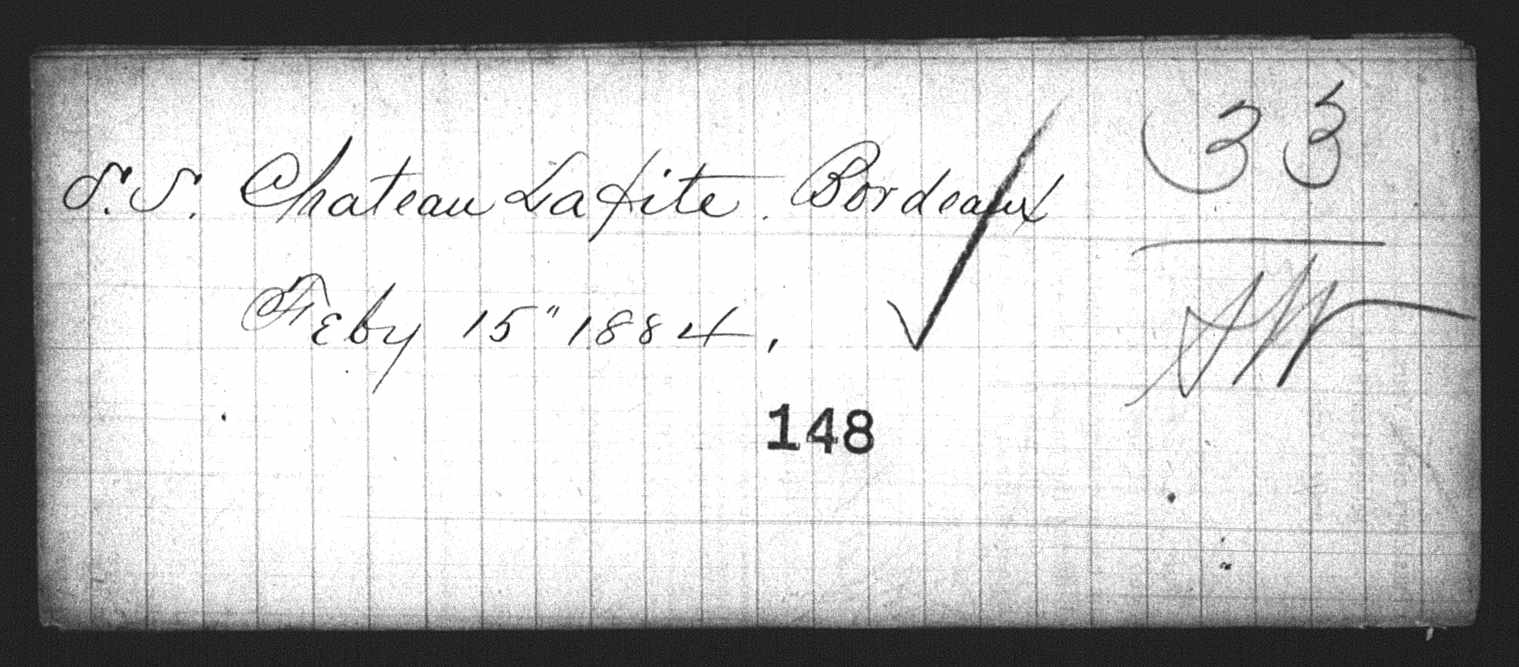 S.S. Chateau Lafite. Bordeaux
33
Feby 15" 1884.
148